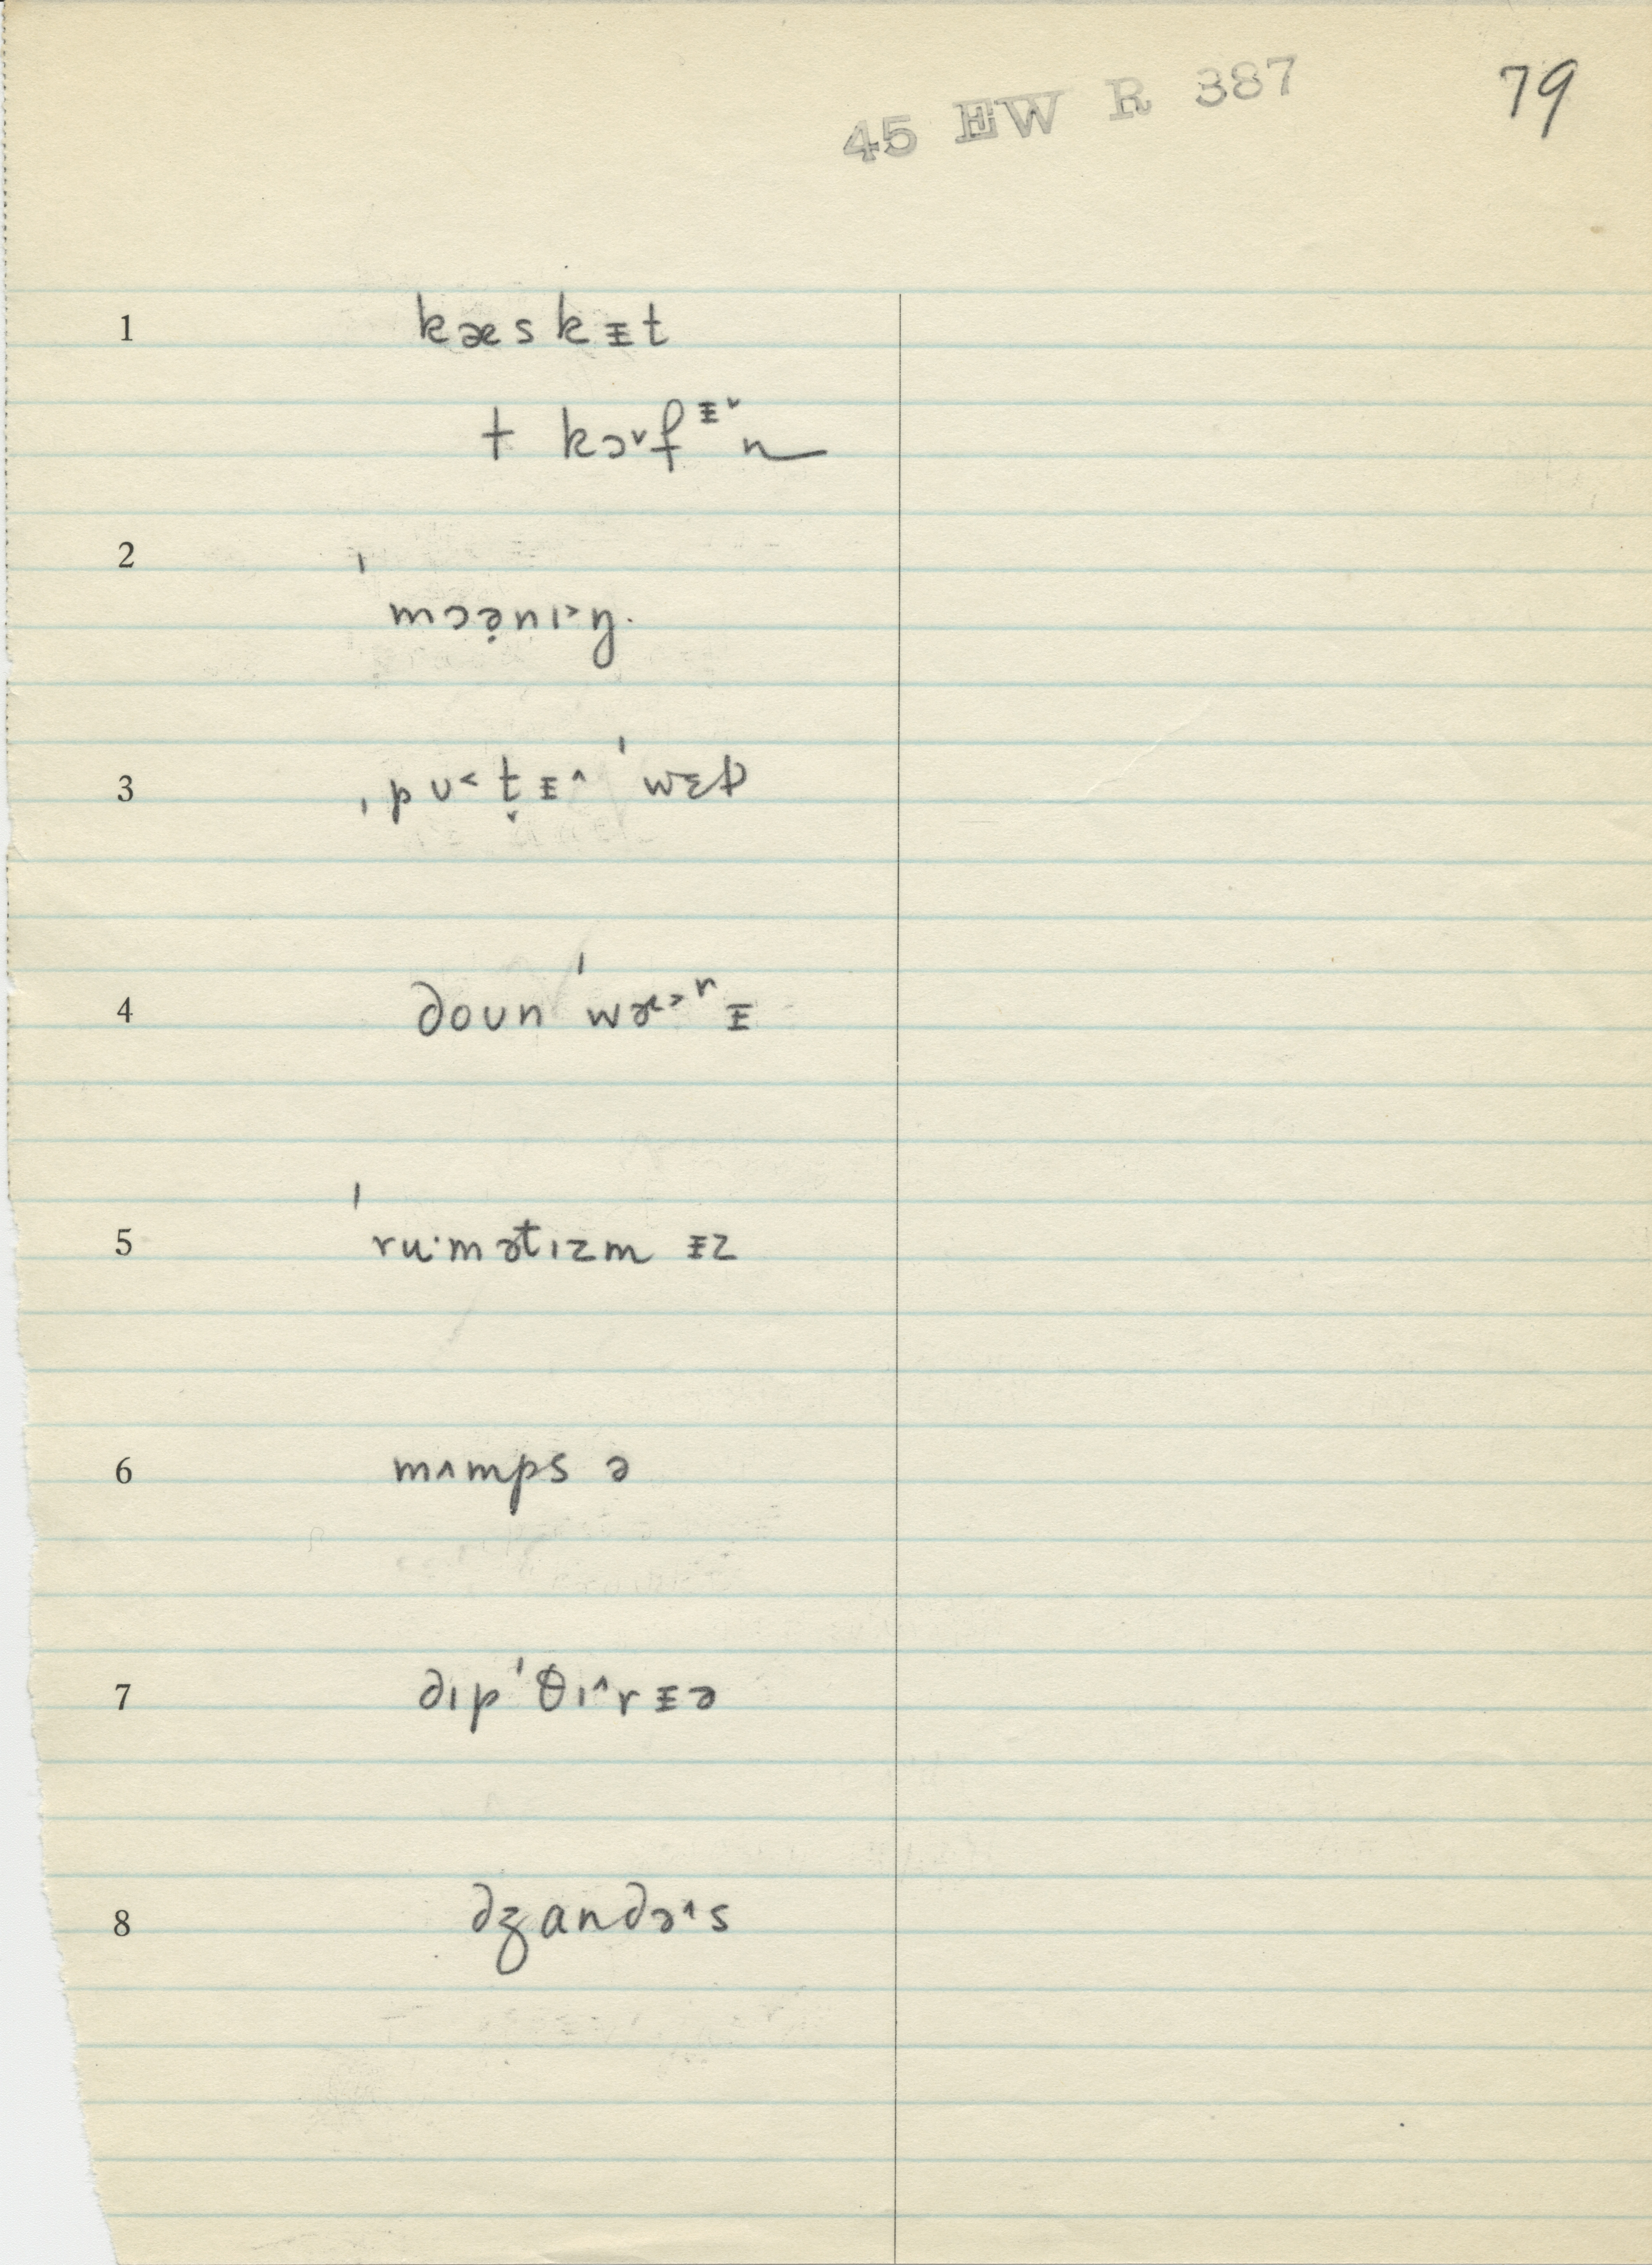 45 EW R 387
79
1 kæskᵻt
† kɔ˅fᵻ˅n
2 ˈmɔə̣nɪ˃ŋ.
3 ˌpʊ˂t̬ᵻ˄ ˈwɛd
4 doun ˈwɜ˃rᵻ
5 ˈru·mətɪzm ᵻz
6 mʌmps ə
7 dɪpˈθɪ˄rᵻə
8 dʒandə˄s